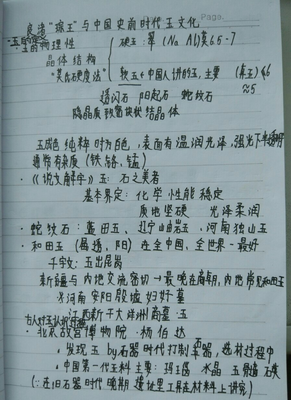 Page.
良渚"琢玉"与中国史前时代玉文化
玉的物理性
硬玉:翠(Na Al)莫6.5-7
晶体结构
"莫氏硬度法"
软玉→中国人讲的玉,主要(真玉)6
≈5
透闪石 阳起石 蛇纹石
隐晶质 致密块状结晶体
玉成色 纯粹时为白色,表面有温润光泽,强光下半透明
通常有杂质(铁、铬、锰)
·《说文解字》玉:石之美者
基本界定:化学性能稳定
质地坚硬 光泽柔润
·蛇纹石:蓝田玉、辽宁岫岩玉、河南独山玉
·和田玉(易透、阳)在全中国、全世界一最好
千字文:玉出昆岗
新疆与内地交流密切→最晚在商朝,内地常见和田玉
河南安阳殷墟妇好墓
江西新干大洋洲商墓 玉
·北京故宫博物院·杨伯达
·发现玉 by 石器时代打制石器,选材过程中
·中国第一代玉料主要:玛瑙 水晶 玉髓 石英
(∵在旧石器时代晚期遗址里工具在材料上讲究)